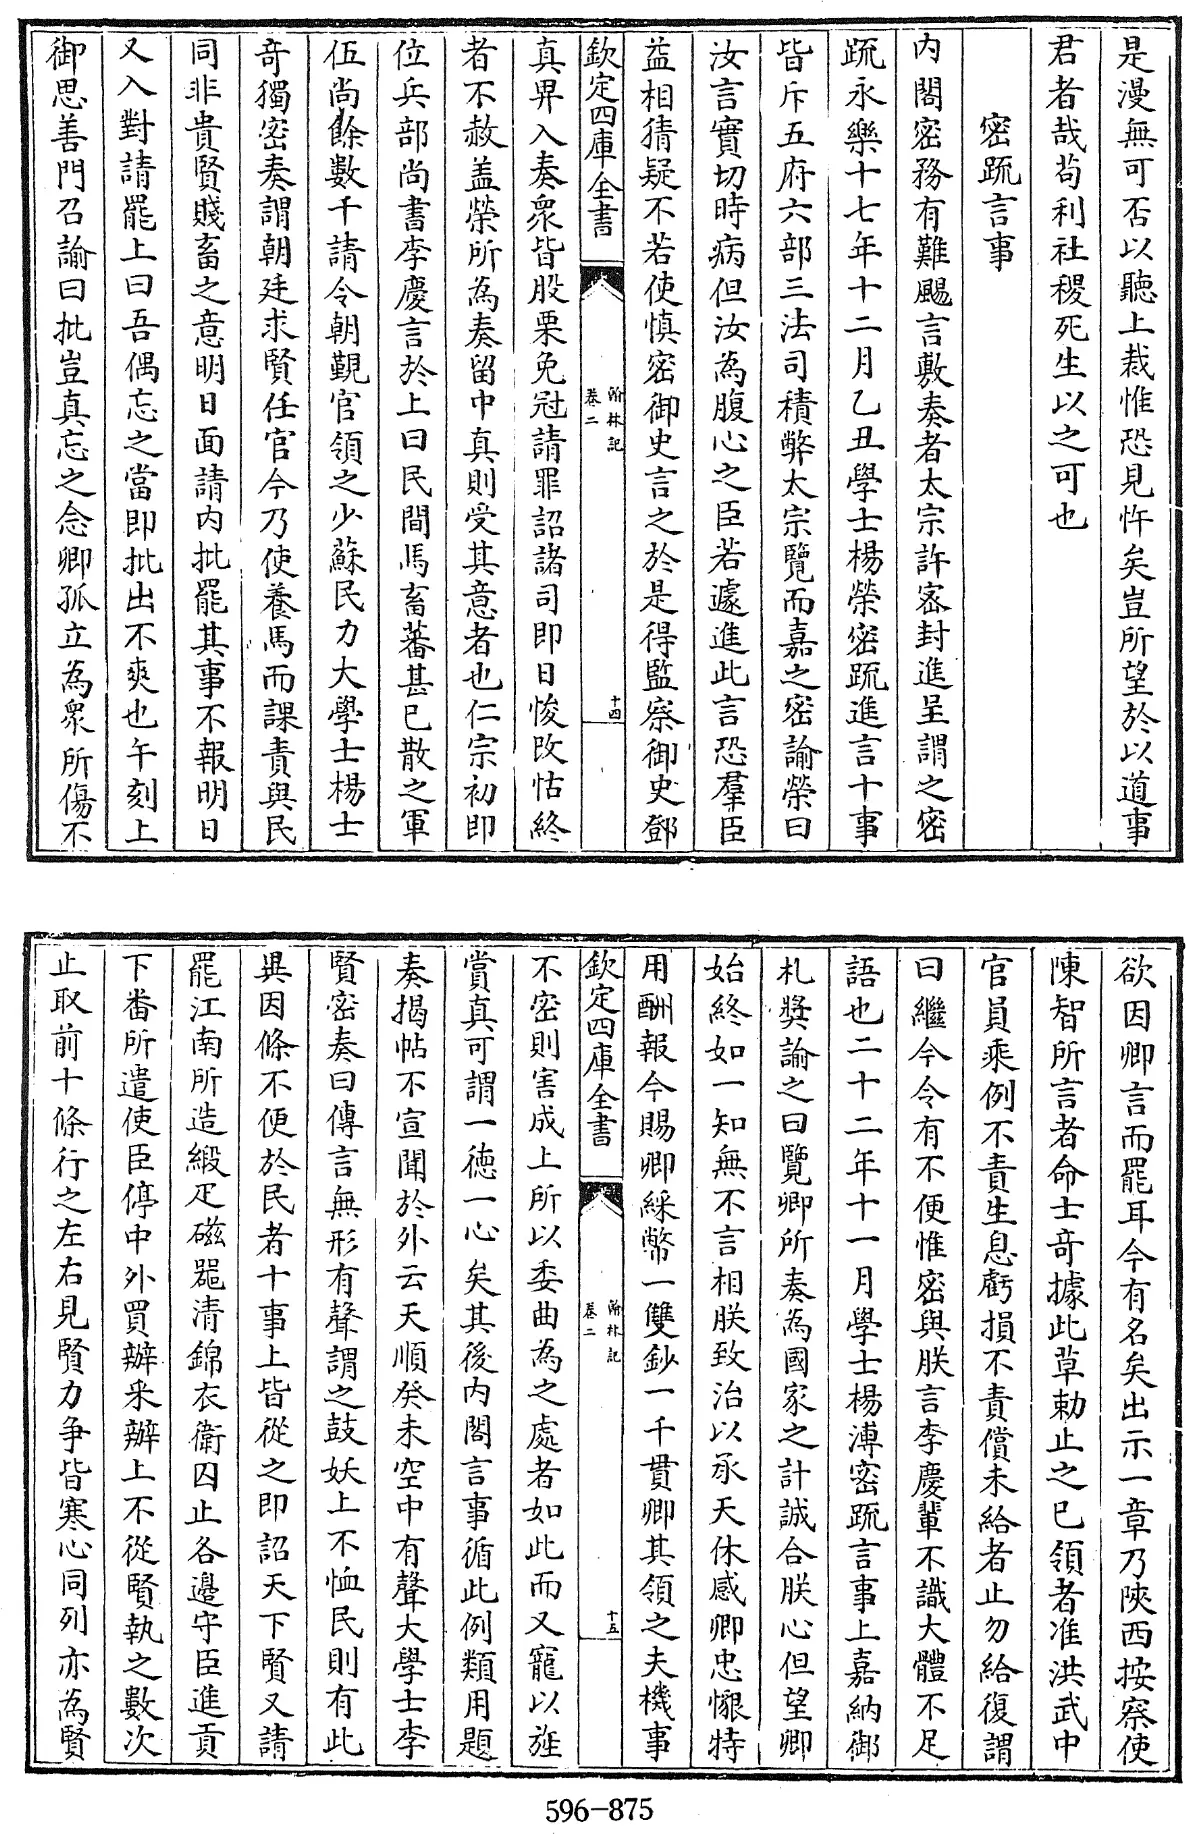 是漫無可否以聽上裁惟恐見忤矣豈所望於以道事
君者哉苟利社稷死生以之可也
密䟽言事
内閣密務有難颺言敷奏者太宗許密封進呈謂之密
䟽永樂十七年十二月乙丑學士楊榮密䟽進言十事
皆斥五府六部三法司積弊太宗覽而嘉之密諭榮曰
汝言實切時病但汝為腹心之臣若遽進此言恐羣臣
益相猜疑不若使慎密御史言之於是得監察御史鄧
欽定四庫全書
翰林記
卷二
十四
真畀入奏衆皆股栗免冠請罪詔諸司即日悛改怙終
者不赦盖榮所為奏留中真則受其意者也仁宗初即
位兵部尚書李慶言於上曰民間馬畜蕃甚已散之軍
伍尚餘數千請令朝覲官領之少蘇民力大學士楊士
奇獨密奏謂朝廷求賢任官今乃使養馬而課責與民
同非貴賢賤畜之意明日面請内批罷其事不報明日
又入對請罷上曰吾偶忘之當即批出不爽也午刻上
御思善門召諭曰批豈真忘之念卿孤立為衆所傷不
欲因卿言而罷耳今有名矣出示一章乃陜西按察使
陳智所言者命士奇據此草勅止之已領者准洪武中
官員乘例不責生息虧損不責償未給者止勿給復謂
曰繼今令有不便惟密與朕言李慶輩不識大體不足
語也二十二年十一月學士楊溥密䟽言事上嘉納御
札奬諭之曰覽卿所奏為國家之計誠合朕心但望卿
始終如一知無不言相朕致治以承天休感卿忠懷特
用酬報今賜卿綵幣一雙鈔一千貫卿其領之夫機事
欽定四庫全書
翰林記
卷二
十五
不密則害成上所以委曲為之處者如此而又寵以旌
賞真可謂一徳一心矣其後内閣言事循此例類用題
奏揭帖不宣聞於外云天順癸未空中有聲大學士李
賢密奏曰傳言無形有聲謂之鼓妖上不恤民則有此
異因條不便於民者十事上皆從之即詔天下賢又請
罷江南所造緞疋磁噐清錦衣衛囚止各邉守臣進貢
下番所遣使臣停中外買辦采辦上不從賢執之數次
止取前十條行之左右見賢力争皆寒心同列亦為賢
596-875